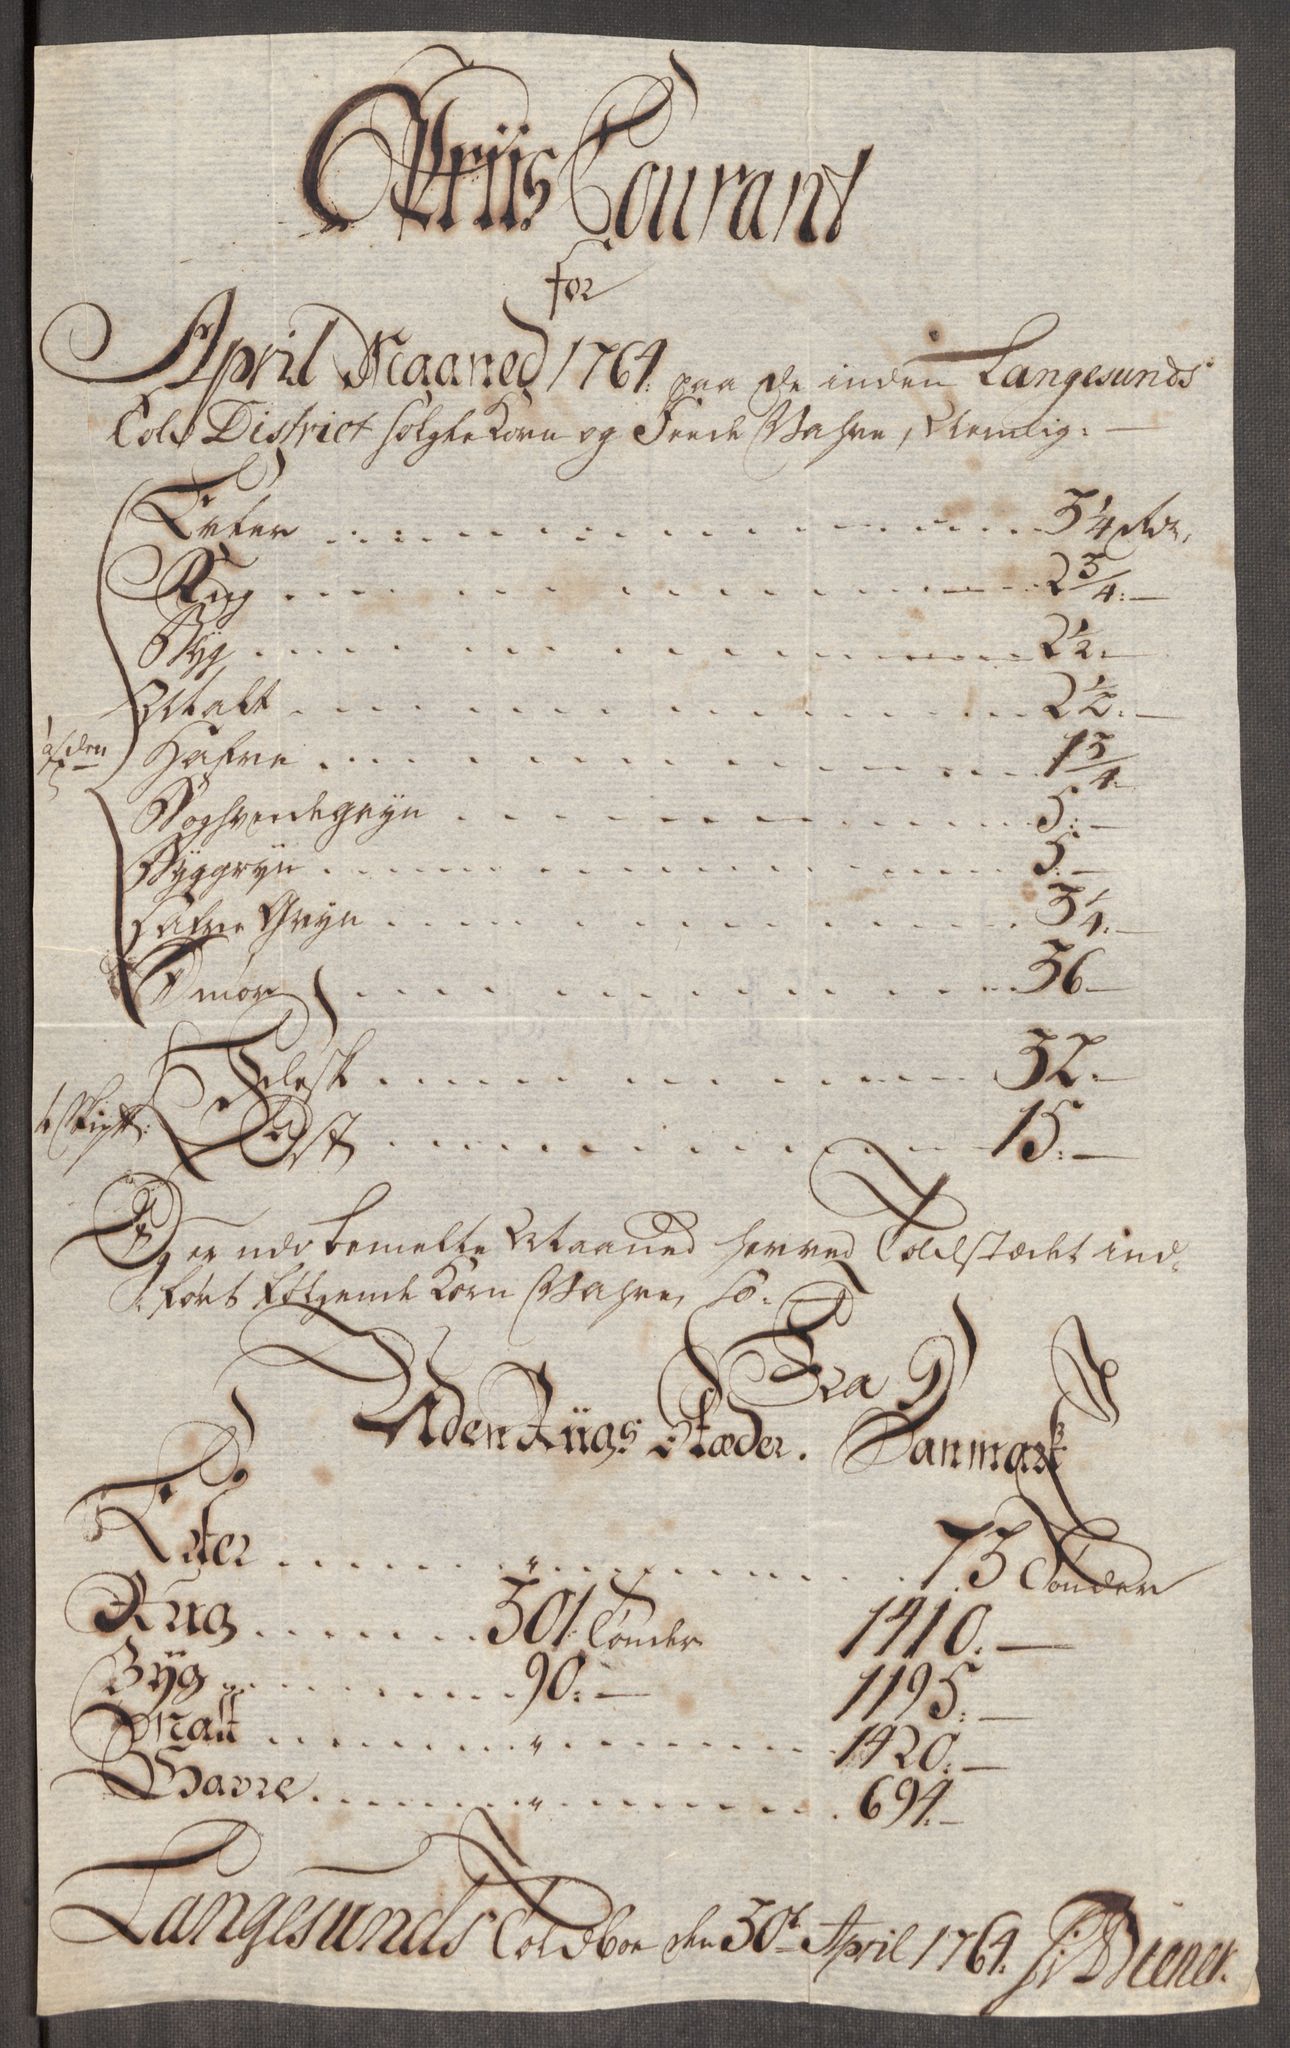 Priis Courant
for
April Maaned 1764. paa de inden Langesunds
Told District solgte Korn og Feede Vahre, Nemlig:
Erter 3 1/4 Rdr.
Rug 2 3/4.
Byg 2 1/2.
Malt 2 1/2.
Hafre 1 3/4.
Boghvedegryn 5.
Byggryn 5.
Hafre Gryn 3 1/4.
Smør 36
Flesk 32.
1 Skip℔: Ost 15.
Og er udi bemelte Maaned herved Toldstædet ind-
ført følgende Korn Vahre, so:
Fra
Uden Riigs Stæder. Danmark
Erter " 73 Tønder
Rug 301 Tønder 1410.
Byg 90. 1195.
Malt " 1420.
Havre " 694.
Langesunds Toldboe den 30t April 1764.